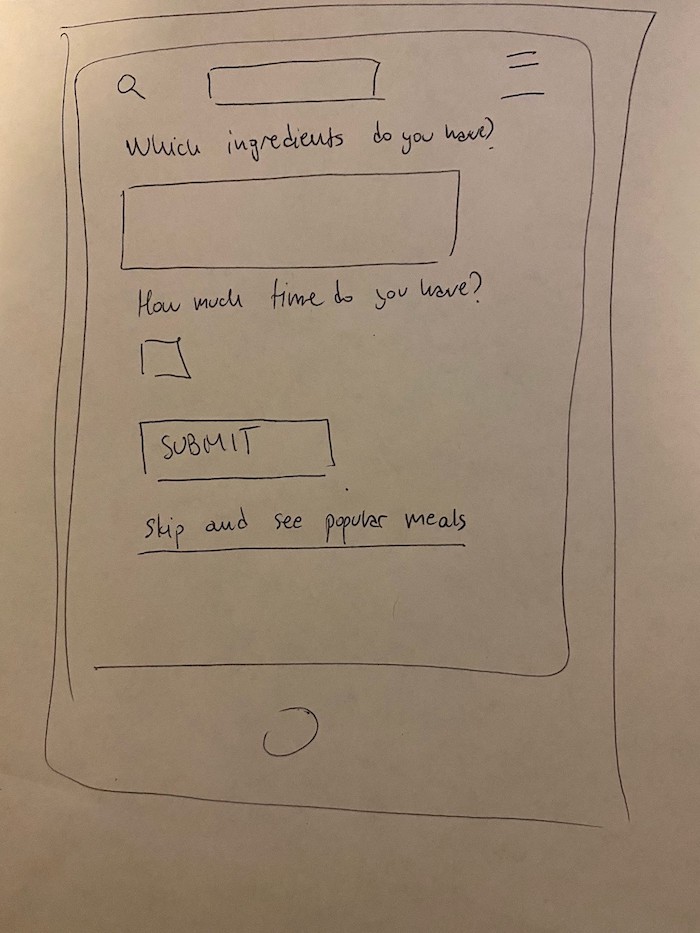 Which ingredients do you have?
How much time do you have?
SUBMIT
Skip and see popular meals